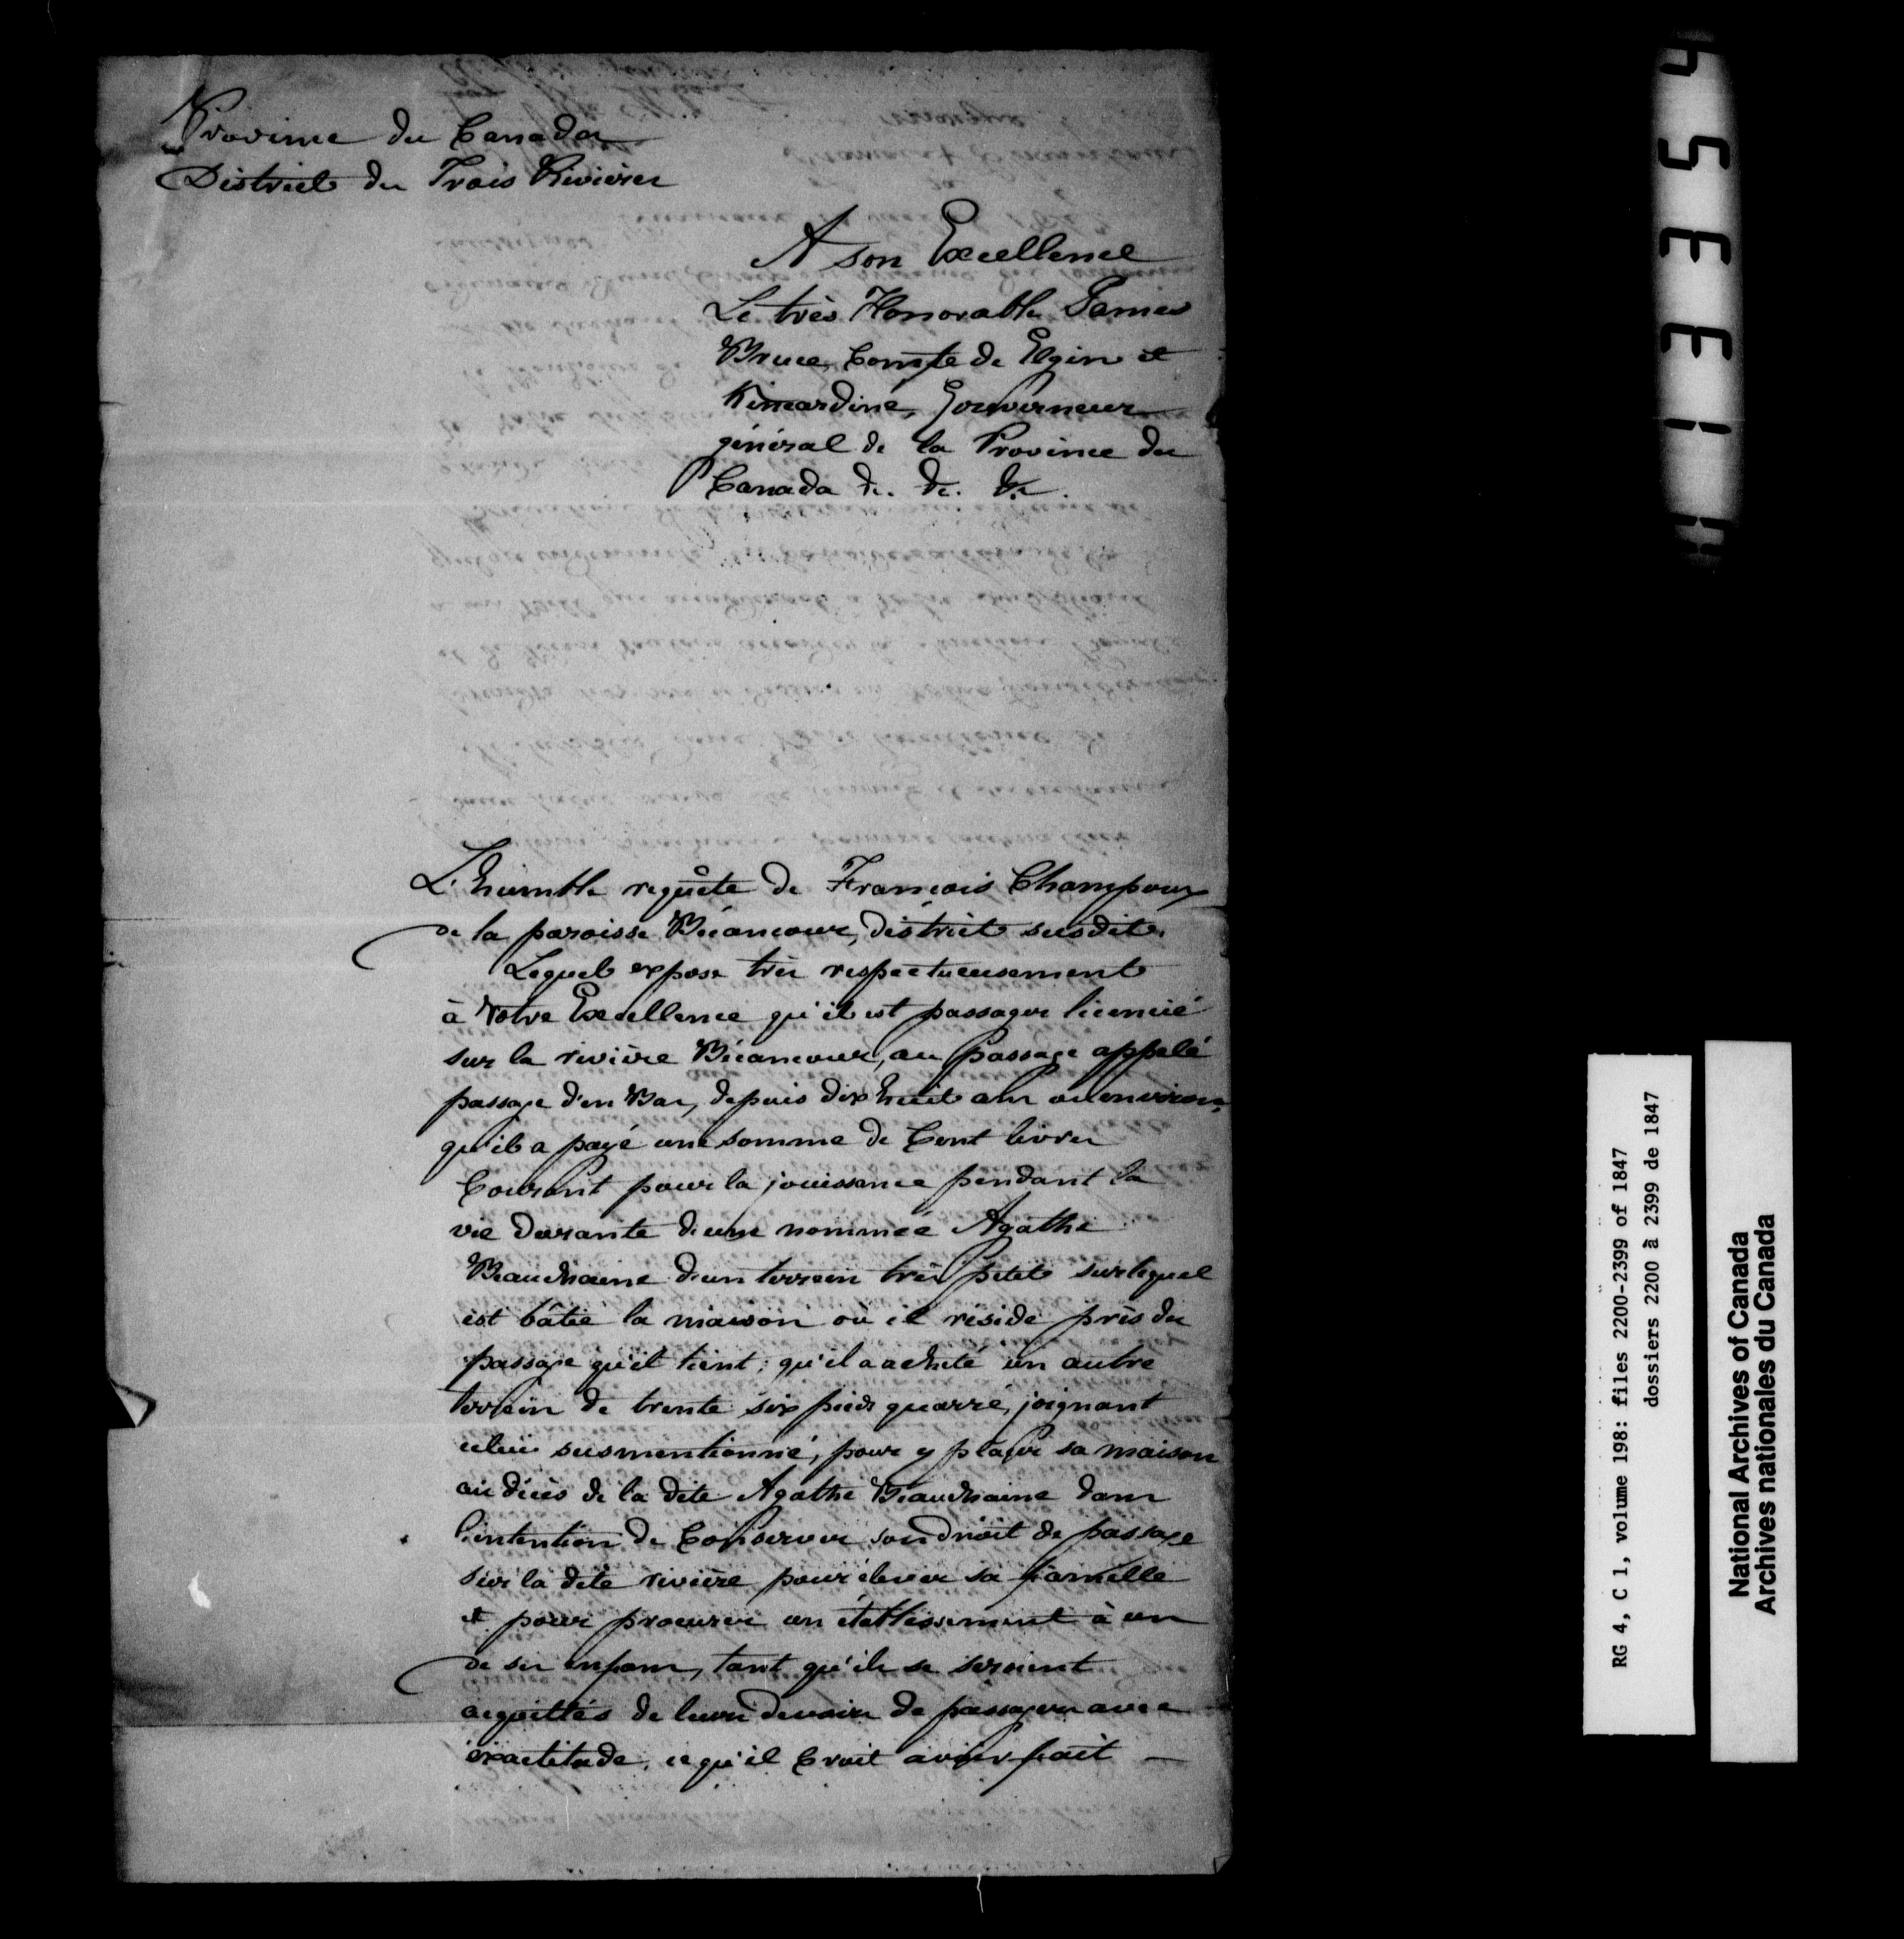 Province du Canada
District des Trois Rivières
A son Excellence
Le très Honorable James
Bruce, Comte de Elgin et
Kincardine, Gouverneur
général de la Province du
Canada &c. &c. &c.
L'humble requête de François Champoux
de la paroisse Bécancour, district susdit.
Lequel expose très respectueusement
à Votre Excellence qu'il est passager licencié
sur la rivière Bécancour, au passage appelé
passage d'en Bas, depuis dix huit ans ou environ,
qu'il a payé une somme de Cent livres
Courant pour la jouissance pendant la
vie durante d'une nommée Agathe
Beauchaine d'un terrein très petit sur lequel
est bâtie la maison où il réside près du
passage qu'il tient; qu'il a acheté un autre
terrein de trente six pieds quarré, joignant
celui susmentionné, pour y placer sa maison
au décès de la dite Agathe Beauchaine dans
l'intention de Conserver son droit de passage
sur la dite rivière pour élever sa famille
et pour procurer un établissement à un
de ses enfans, tant qu'ils se seroient
acquittés de leurs devoirs de passagers avec
exactitude, ce qu'il Croit avoir fait —
4 5 3 3 1
RG 4, C 1, volume 198: files 2200-2399 of 1847
dossiers 2200 à 2399 de 1847
National Archives of Canada
Archives nationales du Canada